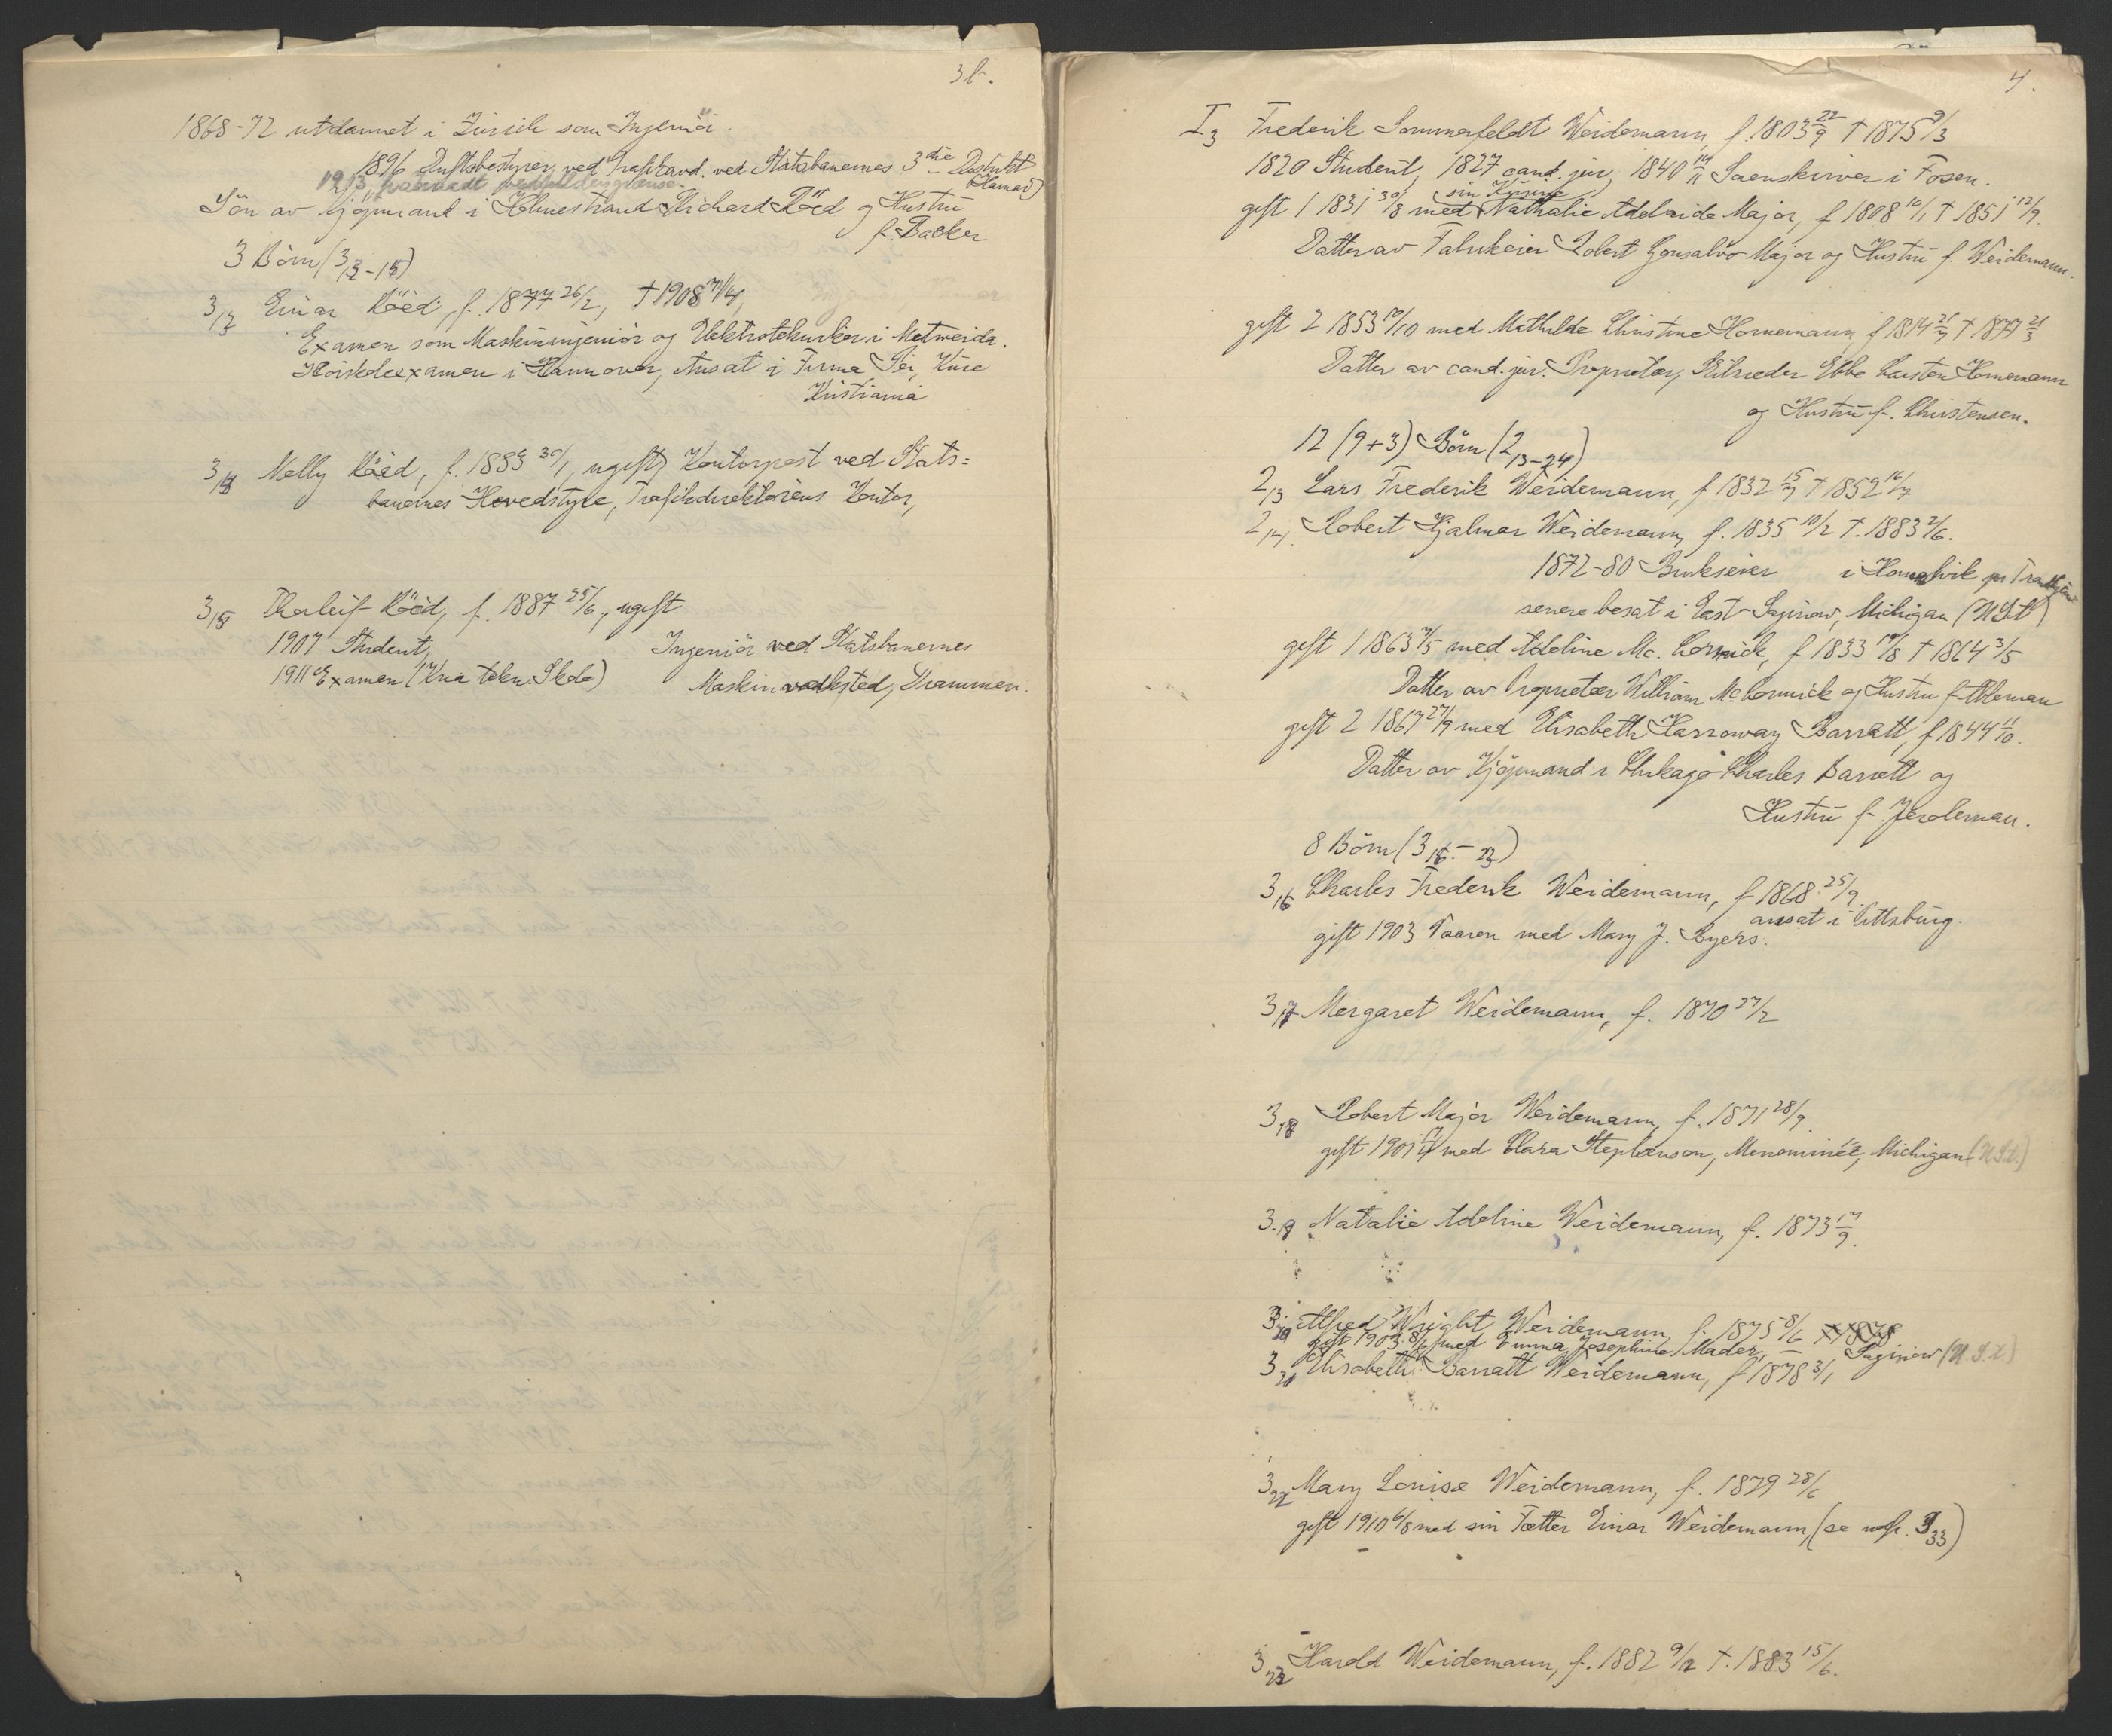 3b.
1868-72 utdannet i Zürich som Ingeniör.
1896 Driftsbestyrer ved Trafikavd. ved Statsbanernes 3die Distrikt
(Hamar)
1913
Sön av Kjöpmand i Holmestrand Richard Röed og Hustru
f. Backer
3 Börn (3/13-15)
3/13 Einar Röed, f. 1877 26/2, † 1908 21/4,
Examen som Maskiningeniör og Elektrotekniker i Metweida.
Höiskoleexamen i Hannover, Ansat i Firma
Kristiania
3/14 Nelly Röed, f. 1883 30/1, ugift, Kontorpost ved Stats=
banernes Hovedstyre, Trafikdirektörens Kontor,
3/15 Thorleif Röed, f. 1887 25/6, ugift
1907 Student, Ingeniör ved Statsbanernes
1911 Examen (Kria tekn. Skole) Maskinverksted, Drammen.
4.
I3 Frederik Sommerfeldt Weidemann, f. 1803 22/9 † 1875 9/3
1820 Student, 1827 cand. jur, 1840 14/11 Sorenskriver i Fosen.
sin Kusine
gift 1 1831 30/8 med Nathalie Adelaide Major, f 1808 10/1 † 1851 12/9.
Datter av Fabrikeier Robert Gonsalvo Major og Hustru f. Weidemann.
gift 2 1853 19/10 med Mathilde Christine Hornemann f 1814 21/7 † 1877 21/3
Datter av cand. jur. Proprietær, Ebbe Carsten Hornemann
og Hustru f. Christensen.
12 (9+3) Börn (2/13-24)
2/13 Lars Frederik Weidemann, f 1832 15/7 † 1852 16/7
2/14. Robert Hjalmar Weidemann, f. 1835 10/2 †. 1883 2/6.
1872-80 Brukseier i Hommelvik pr Trondhjem
senere besat i East-Saginaw, Michigan (U.S.A)
gift 1 1863 7/5 med Adeline Mc. Cormick, f 1833 19/8 † 1864 3/5
Datter av Proprietær William McCormick og Hustru f. Alleman
gift 2 1867 27/9 med Elisabeth Harroway Barratt, f 1844 11/10.
Datter av Kjöpmand i Chikago Charles Barratt og
Hustru f. Jeroleman.
8 Börn (3/16 - 23)
3/16 Charles Frederik Weidemann, f 1868 25/9.
ansat i Pittsburg.
gift 1903 Vaaren med Mary J. Byers.
3/17 Mergaret Weidemann, f. 1870 27/2
3/18 Robert Major Weidemann, f. 1871 28/9.
gift 1901 med Clara Stephenson, Menominee, Michigan (U.S.A.)
3.19 Natalie Adeline Weidemann, f. 1873 17/9.
3/20 Alfred Wright Weidemann, f. 1875 8/6 † 1878
gift 1903 8/6 med Emma Josephine Mader, Saginaw (U.S.A)
3/21 Elisabeth Barratt Weidemann, f 1878 3/1
3/22 Mary Louise Weidemann, f. 1879 28/6
gift 1910 6/8 med sin Fætter Einar Weidemann, (se 3/33)
3/23 Harold Weidemann, f. 1882 9/12 †. 1883 15/6.